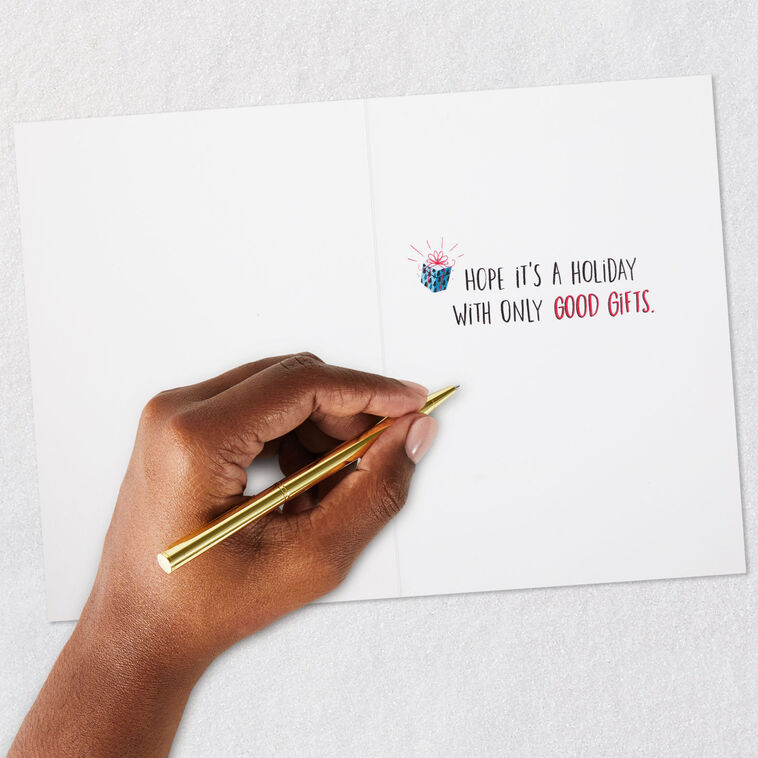 HOPE iT'S A HOLiDAY
WiTH ONLY GOOD GiFTS.